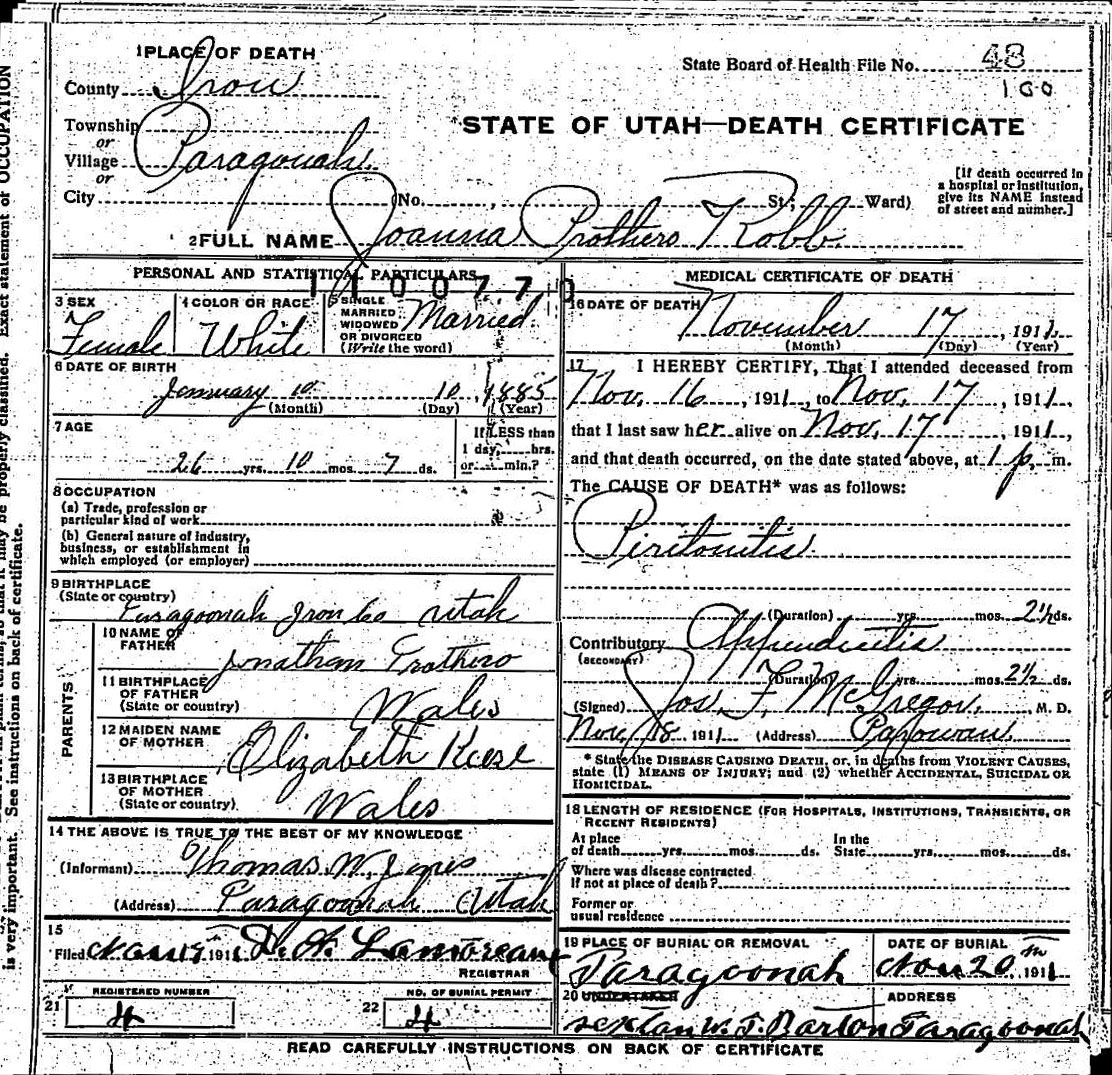 1 PLACE OF DEATH
County Iron
State Board of Health File No. 48
100
Township
or
Village Paragonah
or
City (No. , St.; Ward)
STATE OF UTAH—DEATH CERTIFICATE
[If death occurred in
a hospital or institution,
give its NAME instead
of street and number.]
2 FULL NAME Joanna Prothero Robb
PERSONAL AND STATISTICAL PARTICULARS
1100770
3 SEX
Female
4 COLOR OR RACE
White
5 SINGLE
MARRIED
WIDOWED
OR DIVORCED
(Write the word)
Married
6 DATE OF BIRTH
January 10 10, 1885
(Month) (Day) (Year)
7 AGE
26 yrs. 10 mos. 7 ds.
If LESS than
1 day, hrs.
or min.?
8 OCCUPATION
(a) Trade, profession or
particular kind of work
(b) General nature of industry,
business, or establishment in
which employed (or employer)
9 BIRTHPLACE
(State or country)
Paragoonah Iron Co Utah
PARENTS
10 NAME OF
FATHER
Jonathan Prothero
11 BIRTHPLACE
OF FATHER
(State or country)
Wales
12 MAIDEN NAME
OF MOTHER
Elizabeth Reese
13 BIRTHPLACE
OF MOTHER
(State or country)
Wales
14 THE ABOVE IS TRUE TO THE BEST OF MY KNOWLEDGE
(Informant) Thomas W. Jones
(Address) Paragoonah Utah
15
Filed 191 1
REGISTRAR
21 REGISTERED NUMBER
4
22 NO. OF BURIAL PERMIT
4
MEDICAL CERTIFICATE OF DEATH
16 DATE OF DEATH
November 17, 1911.
(Month) (Day) (Year)
17 I HEREBY CERTIFY, That I attended deceased from
Nov. 16, 1911, to Nov. 17, 1911.
that I last saw her alive on Nov. 17, 1911,
and that death occurred, on the date stated above, at 1 p. m.
The CAUSE OF DEATH* was as follows:
Piritonitis
(Duration) yrs. mos. 2½ ds.
Contributory Appendicitis
(SECONDARY)
(Duration) yrs. mos. 2½ ds.
(Signed) Jos. F. McGregor, M. D.
Nov. 18 1911 (Address) Parowan
* State the DISEASE CAUSING DEATH, or, in deaths from VIOLENT CAUSES,
state (1) MEANS OF INJURY; and (2) whether ACCIDENTAL, SUICIDAL OR
HOMICIDAL.
18 LENGTH OF RESIDENCE (FOR HOSPITALS, INSTITUTIONS, TRANSIENTS, OR
RECENT RESIDENTS)
At place
of death yrs. mos. ds.
In the
State yrs. mos. ds.
Where was disease contracted
if not at place of death?
Former or
usual residence
19 PLACE OF BURIAL OR REMOVAL
Paragoonah
DATE OF BURIAL
Nov 20th, 1911
20 UNDERTAKER
sexton W. T. Barton
ADDRESS
Paragoonah
READ CAREFULLY INSTRUCTIONS ON BACK OF CERTIFICATE
it may be properly classified. Exact statement of OCCUPATION
is very important. See instructions on back of certificate.